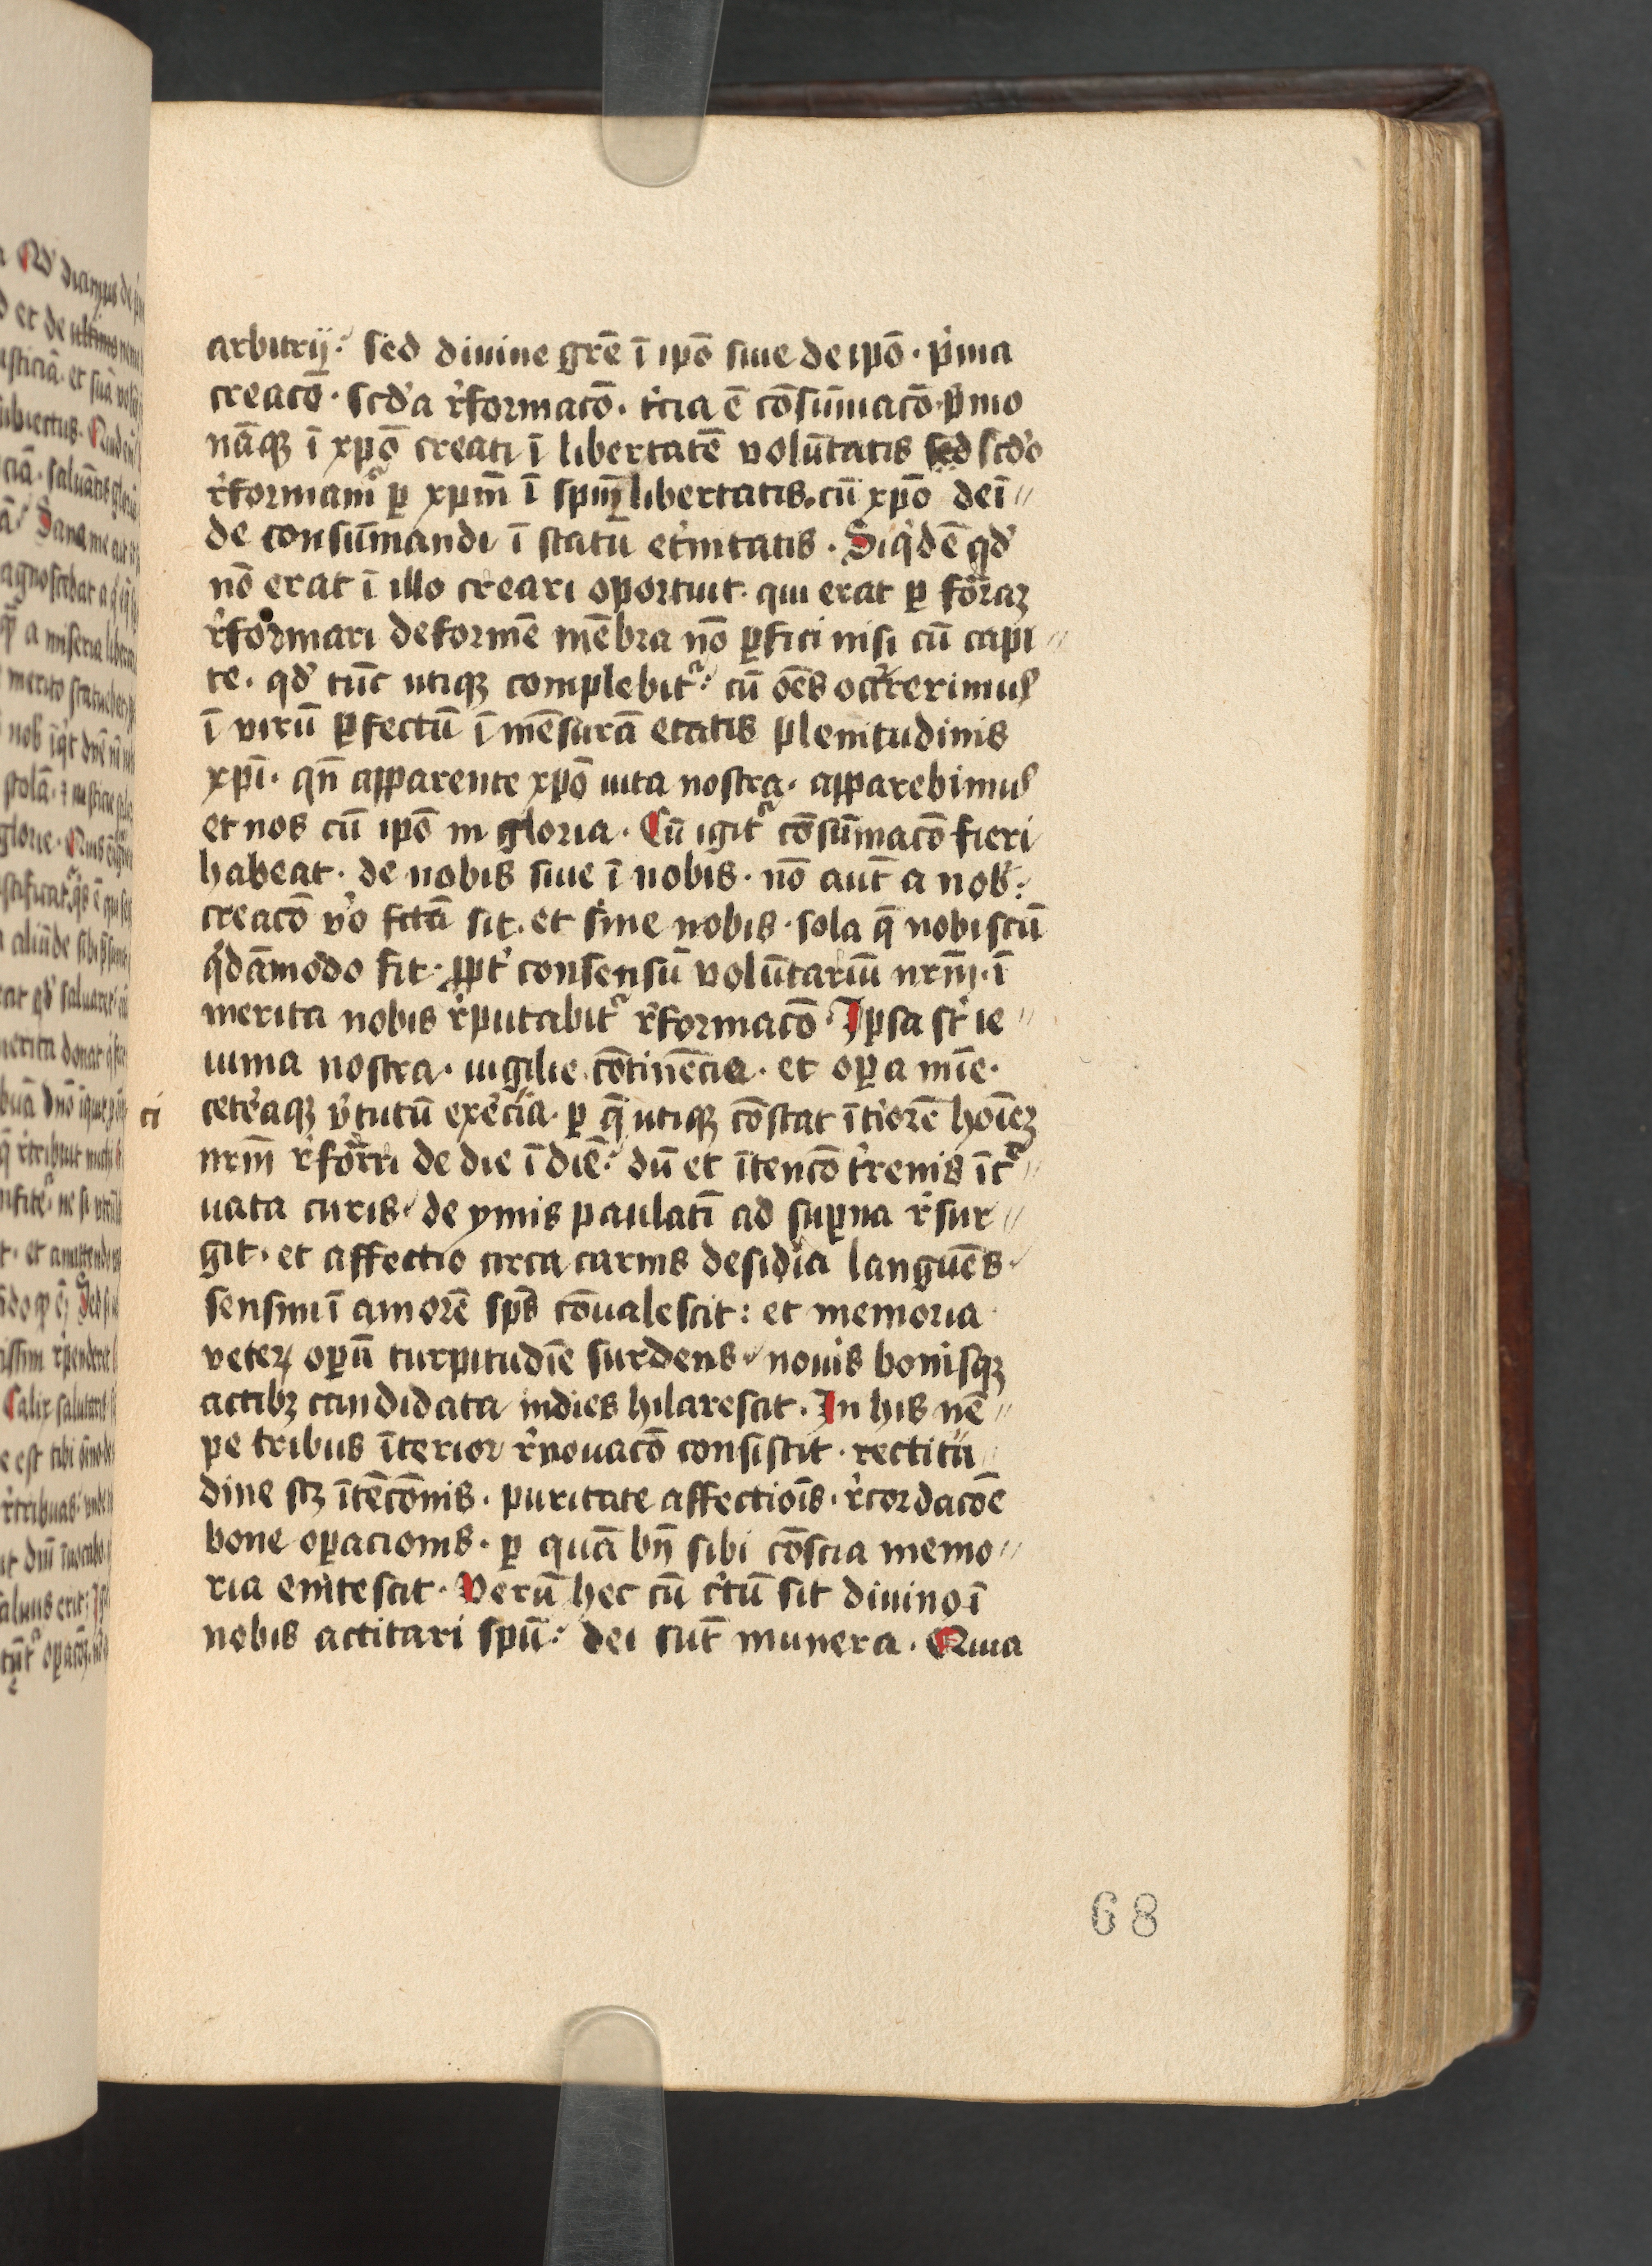 arbitrij : sed diuine grē ī ipō siue de ipō · p̓ma
creacō · scd̓a r̓formacō · t̓cia ē cōsūmacō · p̓mo
nāqꝫ ī xpō creati ī libertatē volūtatis sed scd̓o
r̓formamᷣ ꝑ xpm̄ ī spm̄ libertatis · cū xpō deī〃
de consūmandi ī statū et̓nitatis · Siq̓dē qd̓
nō erat ī illo creari oportuit · qui erat ꝑ formaꝫ
r̓formari deformē mēbra nō ꝑfici nisi cū capi〃
te · qd̓ tūc utiqꝫ complebitᷣ : cū oēs occ̓rrerimus
ī virū ꝑfectū ī mēsurā etatis plenitudinis
xpī · qn̄ apparente xpō uita nostra · apparebimus
et nos cū ipō in gloria · Cū igitᷣ cōsūmacō fieri
habeat · de nobis siue ī nobis · nō aūt a nob̓ :
creacō v̓o fc̄ta sit · et sine nobis · sola q̄ nobiscū
q̓dāmodo fit · ꝓpt̓ consensū volūtariū nrm̄ · ī
merita nobis r̓putabitᷣ r̓formacō · Ipsa st̓ ie〃
iunia nostra · uigilie cōtinēcia · et oꝑa mīe ·
ceteraqꝫ v̓tutū exe̓cia · ꝑ q̄ utiqꝫ cōstat īt̓iorē hoīeꝫ
ci
nrm̄ r̓formri de die ī diē : dū et ītencō t̓renis īcᷣ〃
uata curis · de ymis paulatī ad suꝑna r̓sur〃
git · et affectio circa carnis desidia languēs ·
sensim ī amorē spūs cōualescit : et memoria
veteꝝ oꝑū turpitudīe surdens · nouis bonisqꝫ
actibꝫ candidata indies hilarescit · In his nē〃
pe tribus īterior r̓nouacō consistit · rectitu〃
dine scꝫ ītēcōnis · puritate affectiōis · r̓cordacōe
bone oꝑacionis · ꝑ quā bn̄ sibi cōscia memo〃
ria enitescit · Verū hec cū c̓tū sit diuino ī
nobis actitari spū : dei sūt munera · Quia
68